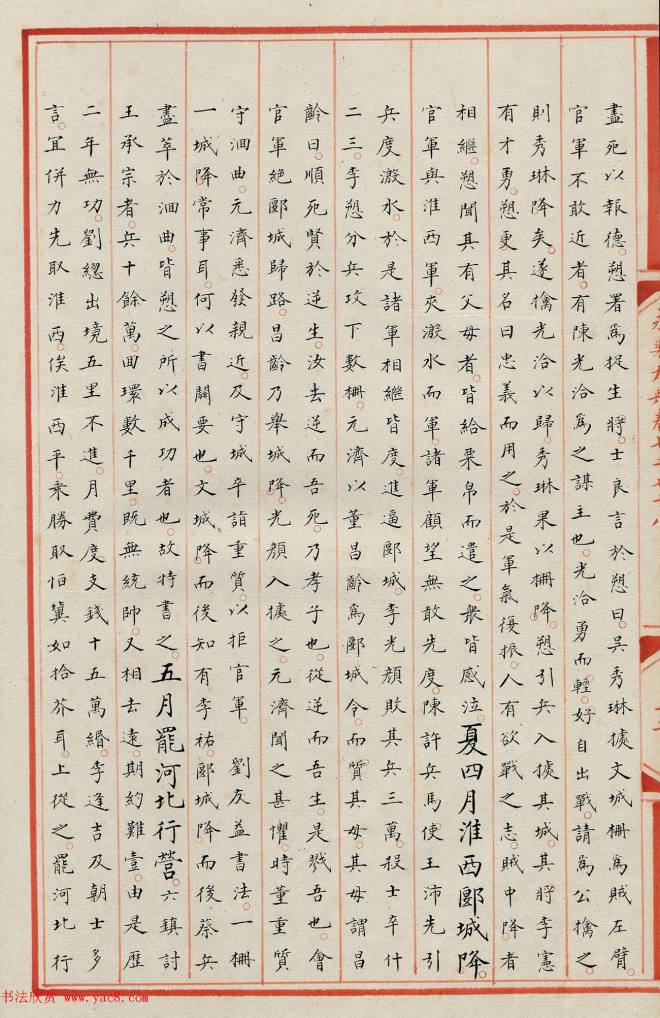 盡死以報德。愬署爲捉生將。士良言於愬曰。吳秀琳據文城柵爲賊左臂。
官軍不敢近者。有陳光洽爲之謀主也。光洽勇而輕。好自出戰。請爲公擒之。
則秀琳降矣。遂擒光洽以歸。秀琳果以柵降。愬引兵入據其城。其將李憲
有才勇。愬更其名曰忠義而用之。於是軍氣復振。人有欲戰之志。賊中降者
相繼。愬聞其有父母者。皆給粟帛而遣之。衆皆感泣。夏四月淮西郾城降。
官軍與淮西軍。夾溵水而軍。諸軍顧望無敢先度。陳許兵馬使王沛先引
兵度溵水。於是諸軍相繼皆度。進逼郾城。李光顏敗其兵三萬。殺士卒什
二三。李愬分兵攻下數柵。元濟以董昌齡爲郾城令。而質其母。其母謂昌
齡曰。順死賢於逆生。汝去逆而吾死。乃孝子也。從逆而吾生。是戮吾也。會
官軍絕郾城歸路。昌齡乃舉城降。光顏入據之。元濟聞之甚懼。時董重質
守洄曲。元濟悉發親近。及守城卒詣重質。以拒官軍。 劉友益書法。一柵
一城降。常事耳。何以書關要也。文城降而後知有李祐。郾城降而後蔡兵
盡萃於洄曲。皆愬之所以成功者也。故特書之。五月罷河北行營。六鎮討
王承宗者。兵十餘萬。回環數千里。既無統帥。又相去遠。期約難壹。由是歷
二年無功。劉總出境五里不進。月費度支錢十五萬緡。李逢吉及朝士多
言。宜併力先取淮西。俟淮西平。乘勝取恒冀如拾芥耳。上從之。罷河北行
書法欣赏 www.yac8.com